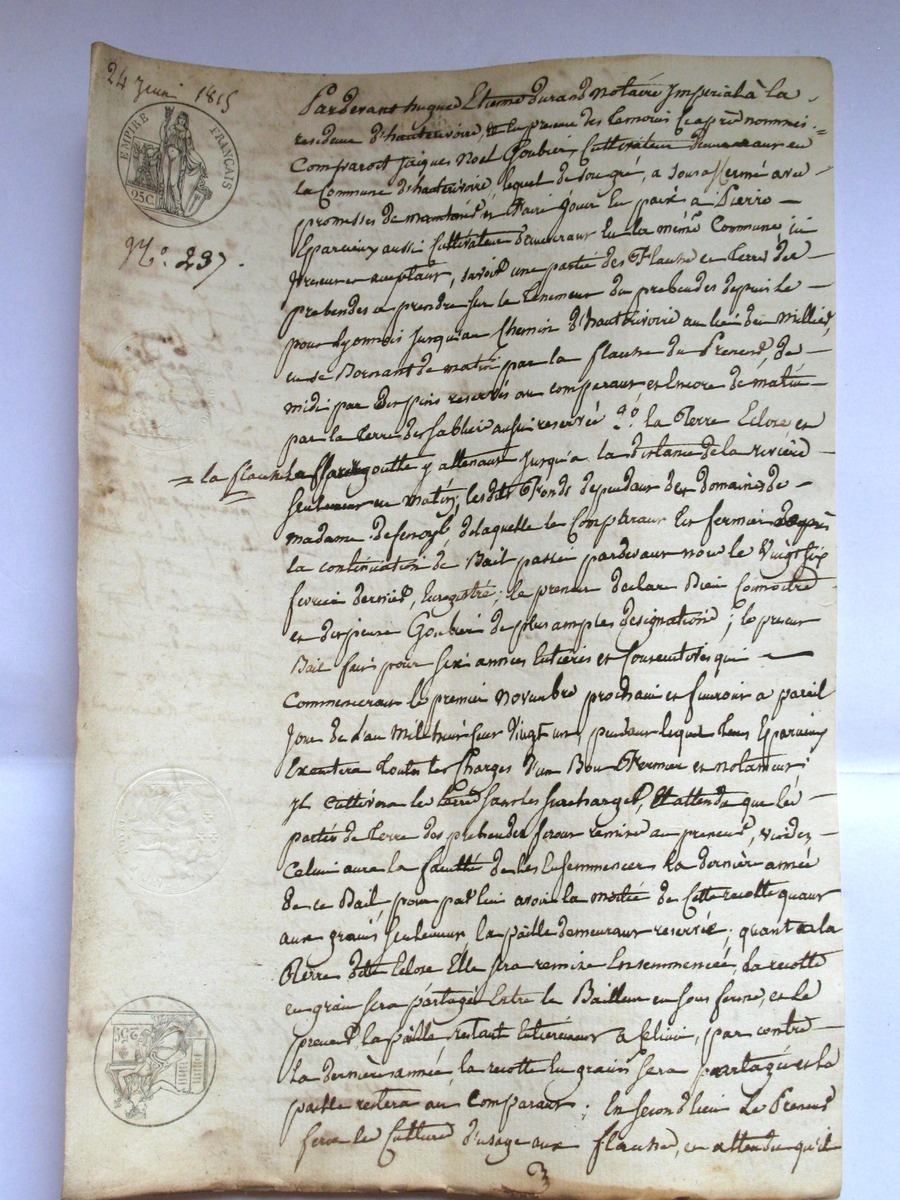 24 Juin 1815
EMPIRE FRANÇAIS
25C.
N.° 237.
Pardevant hugue Etienne Durand Notaire Imperial à la
residence d'hauterivoire, et en presence des temoins Ciaprè nommés =
Comparoit Jacques Noel Goubier Cultivateur demeurant en
la Commune d'hauterivoire, lequel de son gré, a sousaffermé avec
promesses de maintenir et Faire Jouir en paix à Pierre
Eparvieux aussi Cultivateur demeurant en la même Commune ici
present et acceptant, savoir une partie des Flache et Terre des
prebendes a prendre sur le tenement du prebendes depuis le
pour Lyonnois Jusqu'au Chemin d'hauterivoire au lieu du
en se Bornant de matin par la flache du Preneur, de
midi par Des pins reservés au comparant et Encore de matin
par la Terre des sablier aussi reservée 2.° la Terre Eclose et
= la flache La goutte y attenant Jusqu'a la distance de la riviere
seulement en matin; lesdits Fonds dependant des domaines de
madame de fenoyl de laquelle le Comparant Est fermier depuis
la continuation de Bail passée pardevant nous le Vingt six
fevrier dernier, Enregistrée; le preneur declare Bien Connoitre
et dispense Goubier de plus amples designations; le present
Bail fait pour six années Entières et Consecutives qui
Commenceront le premier novembre prochain et finiront a pareil
Jour de L'an Mil huit Cent Vingt un, pendant lequel tems Eparvieux
Executera toutes les Charges d'un Bon Fermier et notament
Il Cultivera le terre sans les surcharger, Et attendu que les
parties de terre dos prebendes seront remise au preneur, vuides,
Celui aura la faculté de les Ensemmencer la dernière année
de ce Bail, pour par lui avoir la moitié de Cette recolte quant
aux grains seulement, la paille demeurant reservée; quant a la
Terre dite Eclose Elle sera remise Ensemmencée, la recolte
en grain sera partagée Entre le Bailleur en sous ferme, et le
preneur, la paille restant Entierement a Celui, par contre
La derniere année, la recolte En grains sera partagée et la
paille restera au Comparant; En second lieu Le Preneur
fera le Culture d'usage aux flache, et attendu qu'il
25C
3